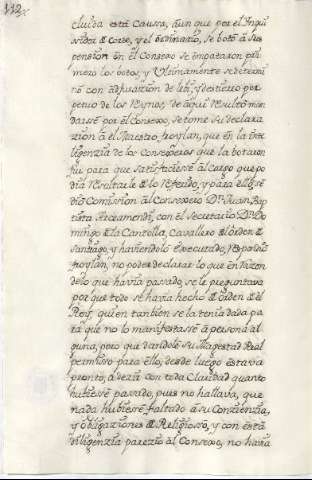 112
cluida esta Caussa, aun que por el Inqui
sidor de Corte, y el ordinario, se botò à sus
pension en el Consexo se empataron pri
mero los botos, y Ultimamente se determi
nò con adjuracion de libi, y destierro per
petuo de los Reynos, de aqui resultò man
darse por el Consexo, se tome su declara
zion à el Maestro froylan, que en la Inte
ligenzia de los Consexeros que la botaron
fiu para que satisfaciese al cargo que po
dia resultarle de lo referido, y para ello se
dio Comission al Consexero Dn. Juan Bap
tista Arceamendi, con el Secretario Dn. Do
mingo de la Cantolla, Cavallero del orden de
Santiago, y haviendolo executado, respondio
froylan, no poder declarar lo que en razon
delo que havia passado, se le preguntava
por que todo se havia hecho de orden del
Rey, quien tambien se la tenia dada pa
ra que no lo manifestasse à persona al
guna, pero que dandole su Magestad Real
permisso para ello, desde luego estava
prompto, à dezir con toda Claridad quanto
hubiesse passado, pues no hallava, que
nada hubiesse faltado à su Conzienzia,
y obligaziones de Religiosso, y con esta
diligenzia parezio al Consexo, no havia